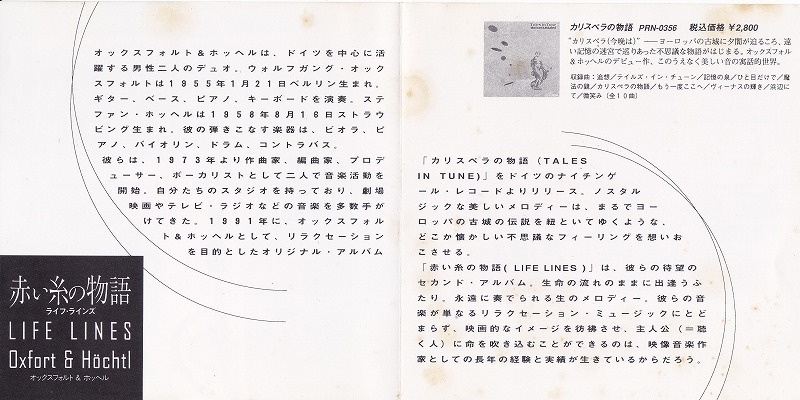 オックスフォルト＆ホッヘルは、ドイツを中心に活
躍する男性二人のデュオ。ウォルフガング・オック
スフォルトは１９５５年１月２１日ベルリン生まれ。
ギター、ベース、ピアノ、キーボードを演奏。ステ
ファン・ホッヘルは１９５８年８月１６日ストラウ
ビング生まれ。彼の弾きこなす楽器は、ビオラ、ピ
アノ、バイオリン、ドラム、コントラバス。
彼らは、１９７３年より作曲家、編曲家、プロデ
ューサー、ボーカリストとして二人で音楽活動を
開始。自分たちのスタジオを持っており、劇場
映画やテレビ・ラジオなどの音楽を多数手が
けてきた。１９９１年に、オックスフォル
ト＆ホッヘルとして、リラクセーション
を目的としたオリジナル・アルバム
赤い糸の物語
ライフ・ラインズ
LIFE LINES
Oxfort & Höchtl
オックスフォルト & ホッヘル
カリスペラの物語 PRN-0356 税込価格 ￥2,800
“カリスペラ(今晩は)”──ヨーロッパの古城に夕闇が迫るころ、遠
い記憶の迷宮で巡りあった不思議な物語がはじまる。オックスフォル
&ホッヘルのデビュー作、このうえなく美しい音の寓話的世界。
収録曲：追想／テイルズ・イン・チューン／記憶の泉／ひと目だけで／魔
法の鏡／カリスペラの物語／もう一度ここへ／ヴィーナスの輝き／浜辺に
て／微笑み（全１０曲）
「カリスペラの物語（TALES
IN TUNE)」をドイツのナイチンゲ
ール・レコードよりリリース。ノスタル
ジックな美しいメロディーは、まるでヨー
ロッパの古城の伝説を紐といてゆくような、
どこか懐かしい不思議なフィーリングを想いお
こさせる。
「赤い糸の物語( LIFE LINES )」は、彼らの待望の
セカンド・アルバム。生命の流れのままに出逢うふ
たり。永遠に奏でられる生のメロディー。彼らの音
楽が単なるリラクセーション・ミュージックにとど
まらず、映画的なイメージを彷彿させ、主人公（＝聴
く人）に命を吹き込むことができるのは、映像音楽作
家としての長年の経験と実績が生きているからだろう。